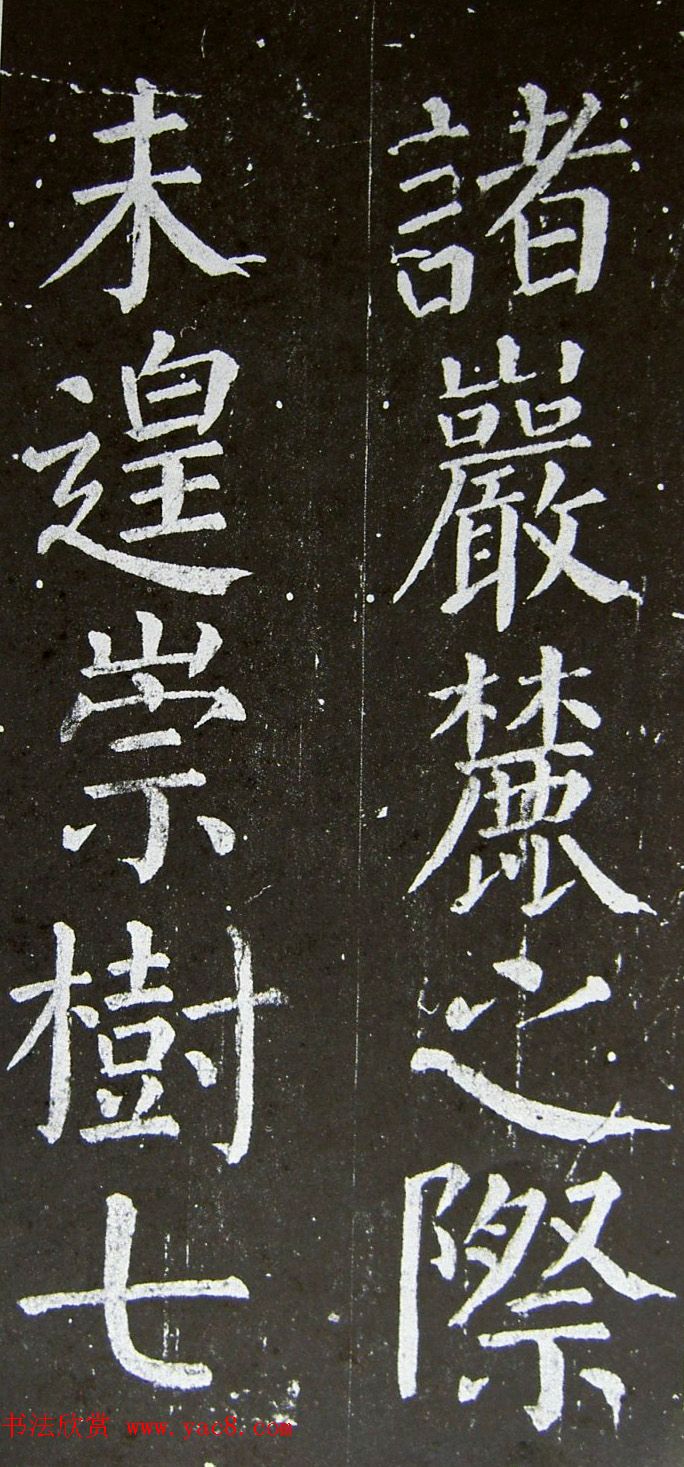 諸巖麓之際
未遑崇樹七
书法欣赏 www.yac8.com